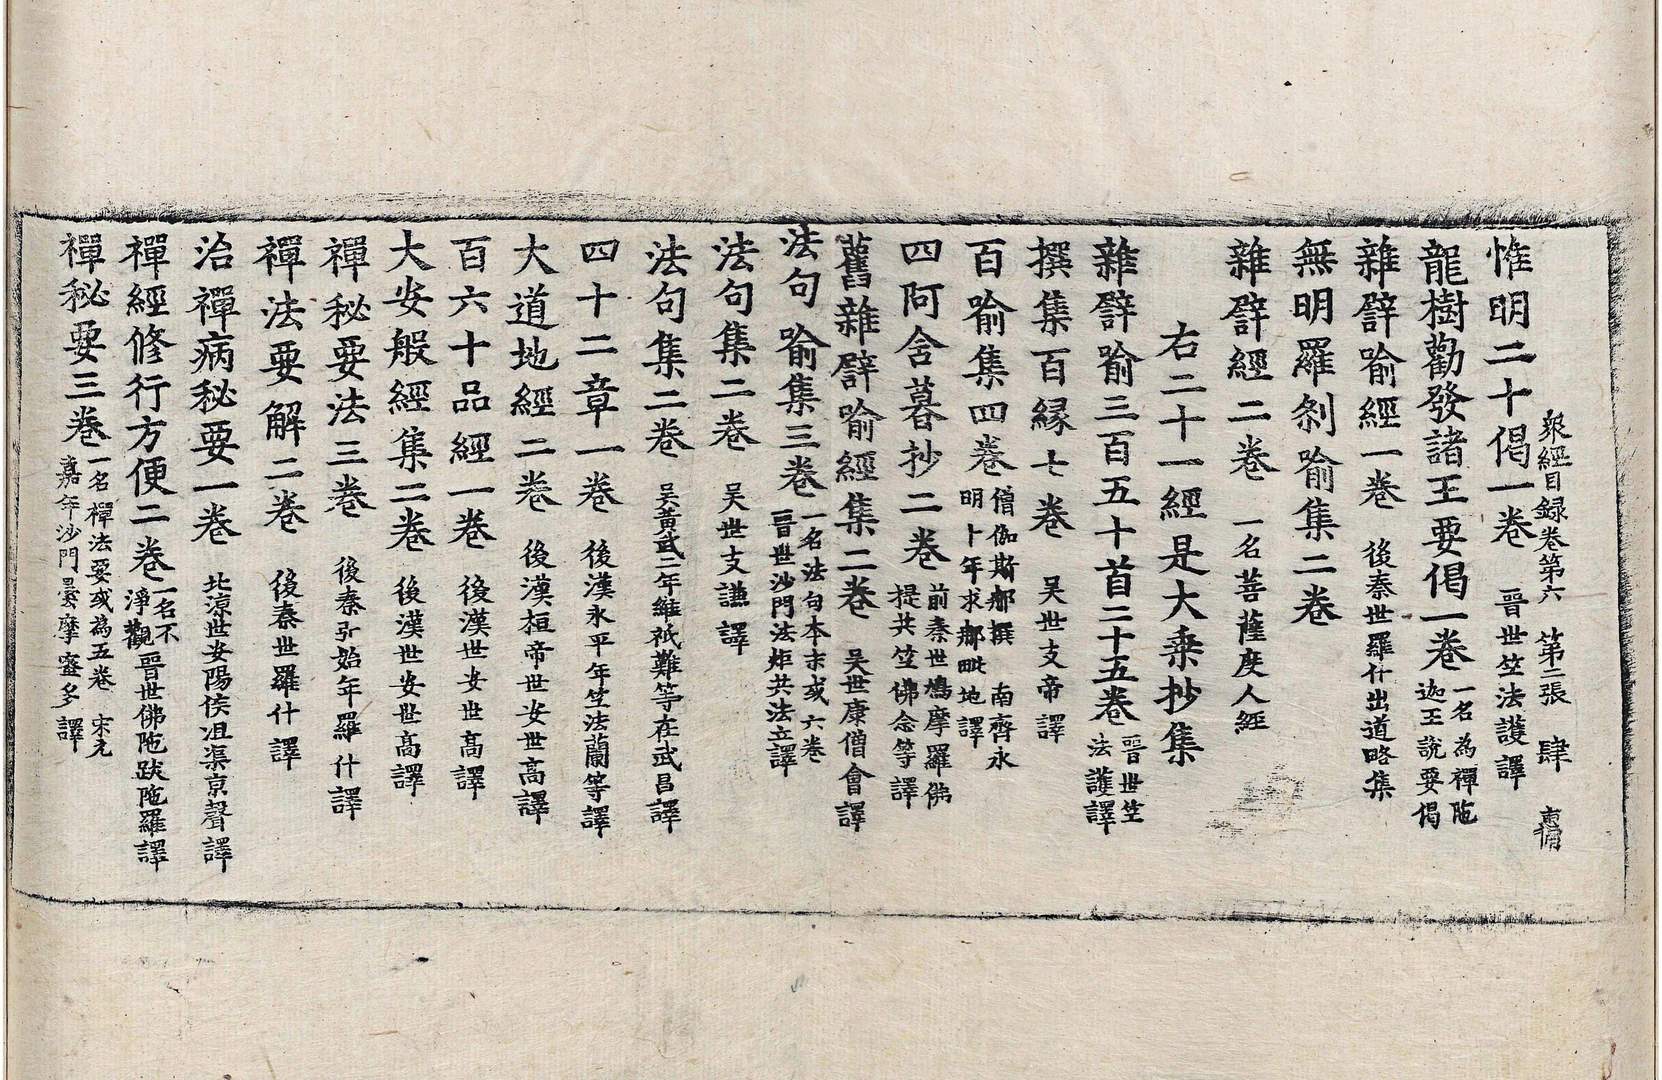 衆經目録卷第六 第二張 肆
惟明二十偈一卷 晉世竺法護譯
龍樹勸發諸王要偈一卷 一名為禪陁迦王說要偈
雜譬喻經一卷 後秦世羅什出道略集
無明羅刹喻集二卷
雜譬經二卷 一名菩薩度人經
右二十一經是大乘抄集
雜譬喻三百五十首二十五卷 晉世竺法護譯
撰集百縁七卷 吴世支帝譯
百喻集四卷 僧伽斯那撰 南齊永明十年求那毗地譯
四阿含暮抄二卷 前秦世鳩摩羅佛提共竺佛念等譯
舊雜譬喻經集二卷 吴世康僧會譯
法句喻集三卷 一名法句本末或六卷 晉世沙門法炬共法立譯
法句集二卷 吴世支謙譯
法句集二卷 吴黃武三年維祇難等在武昌譯
四十二章一卷 後漢永平年竺法蘭等譯
大道地經二卷 後漢桓帝世安世高譯
百六十品經一卷 後漢世安世高譯
大安般經集二卷 後漢世安世高譯
禪秘要法三卷 後秦弘始年羅什譯
禪法要解二卷 後秦世羅什譯
治禪病秘要一卷 北涼世安陽侯沮渠京聲譯
禪經修行方便二卷 一名不淨觀 晉世佛陁跋陁羅譯
禪秘要三卷 一名禪法要或為五卷 宋元嘉年沙門曇摩蜜多譯